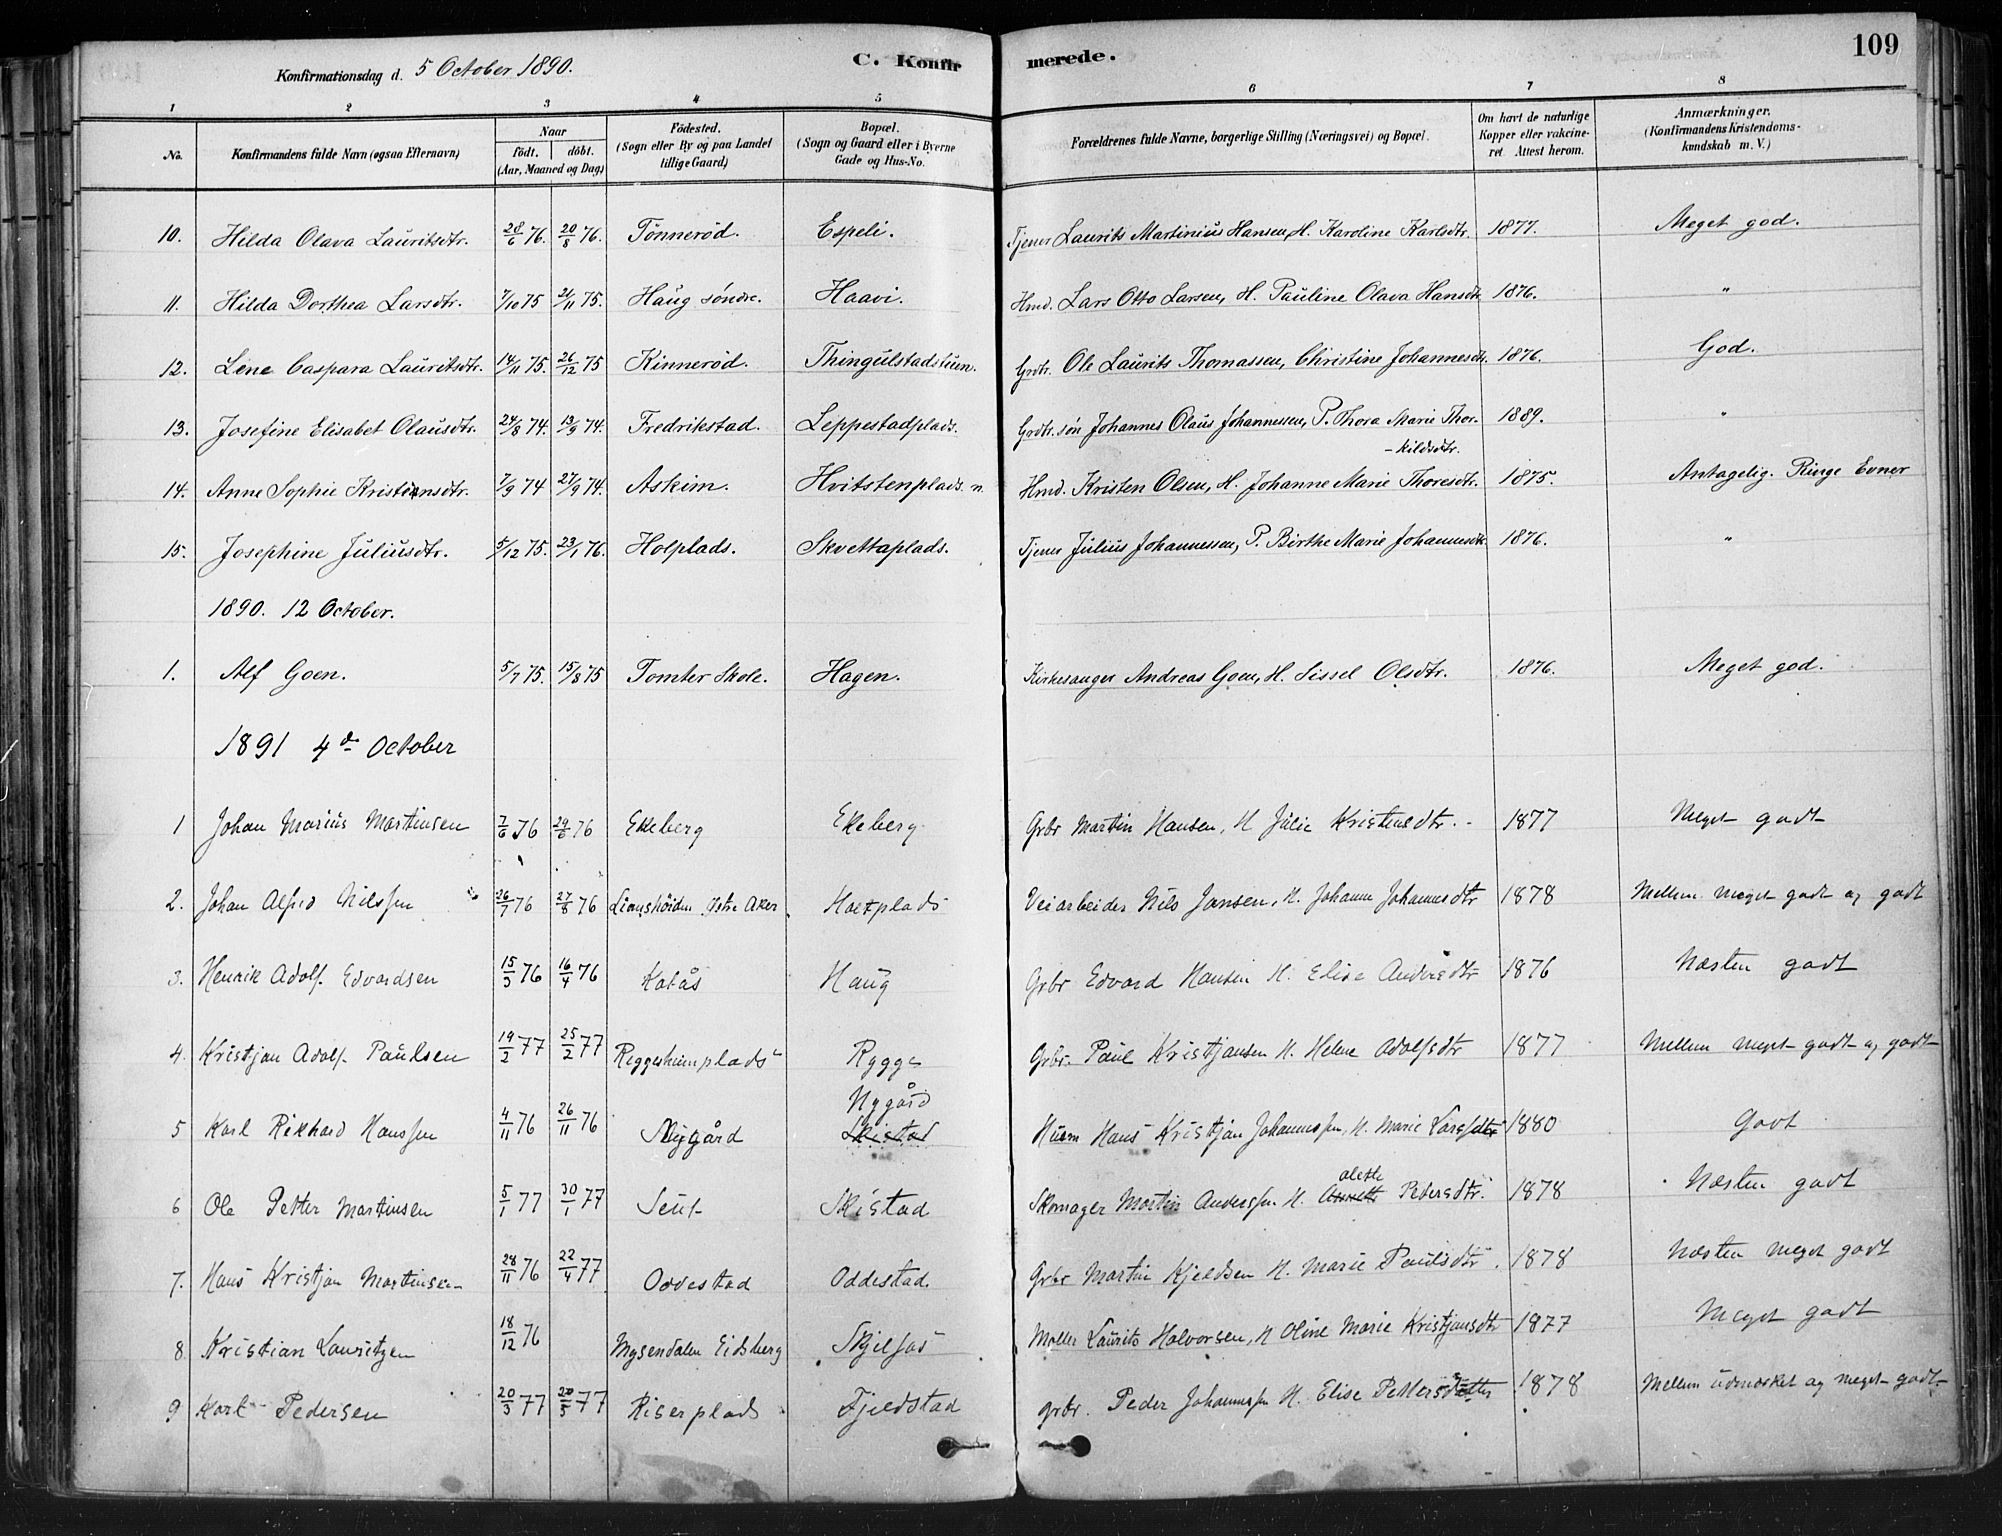 109
Konfirmationsdag d. 5 October 1890. C. Konfirmerede.
1 2 3 4 5 6 7 8
No. Konfirmandens fulde Navn (ogsaa Efternavn) Naar født. døbt. (Aar, Maaned og Dag) Fødested. (Sogn eller By og paa Landet tillige Gaard) Bopæl. (Sogn og Gaard eller i Byerne Gade og Hus-No. Forældrenes fulde Navne, borgerlige Stilling (Næringsvei) og Bopæl. Om havt de naturlige Kopper eller vakcineret Attest herom. Anmærkninger. (Konfirmandens Kristendomskundskab m. V.)
10. Hilda Olava Lauritsdtr. 28/6 76. 20/8 76. Tønnerød. Espeli. Tjener Laurits Martinius Hansen, H. Karoline Karlsdtr. 1877. Meget god.
11. Hilda Dorthea Larsdtr. 7/10 75 21/11 75. Haug søndre. Haavi. Hmd. Lars Otto Larsen, H. Pauline Olava Hansdtr. 1876. "
12. Lene Caspara Lauritsdtr. 14/11 75. 26/12 75 Kinnerød. Thingulstadstuen. Grdbr. Ole Laurits Thomassen, Christine Johannesdtr. 1876. God.
13. Josefine Elisabet Olausdtr. 24/8 74. 13/9 74. Fredrikstad. Leppestadplads. Grdbr. søn Johannes Olaus Johannessen, P. Thora Marie Thor- 1889. "
-kildsdtr.
14. Anne Sophie Kristiansdtr. 7/9 74 27/9 74. Askim. Hvitstenplads. n. Hmd. Kristen Olsen, H. Johanne Marie Thoresdtr. 1875. Antagelig. Ringe Evner
15. Josephine Juliusdtr. 5/12 75. 23/1 76. Holplads. Skvettaplads. Tjener Julius Johannessen, P. Birthe Marie Johannesdtr. 1876. "
1890. 12 October.
1. Alf Goen. 5/7 75. 15/8 75 Tomter Skole. Hagen. Kirkesanger Andreas Goen, H. Sissel Olsdtr. 1876. Meget god.
1891 4de October
1 Johan Marius Martinsen 7/6 76 29/6 76 Ekeberg Ekeberg Grbr Martin Hansen, H Julie Kristensdtr. 1877 Meget godt
2. Johan Alfred Nilssen 26/7 76 27/8 76 Østre Aker Holtplads Veiarbeider Nils Jansen, H. Johanne Johannesdtr 1878 Mellem meget godt og godt
3. Henrik Adolf. Edvardsen 15/3 76 16/4 76 Kolås Haug Grbr Edvard Hansen H. Elise Andersdtr 1876 Næsten godt
4. Kristjan Adolf. Paulsen 19/2 77 25/2 77 Ryggesheimplads Rygge Grbr. Paul Kristjansen H. Helene Adolfsdtr 1877 Mellem meget godt og godt
Nygård
5 Karl Rikhard Hanssen 4/11 76 26/11 76 Nygård Skistad Husm Hans Kristjan Johannssen, H. Marie Larsdtr 1880 Godt
alette
6 Ole Petter Martinsen 5/1 77 30/1 77 Seut Skistad Skomager Martin Anderssen H. Annette Petersdtr. 1878 Næsten godt
7. Hans Kristjan Martinsen 28/11 76 22/4 77 Oddestad Oddestad. Grbr Martin Kjeldsen H. Marie Paulsdtr. 1878 Næsten meget godt
8 Kristian Lauritzen 18/12 76 Mysendalen Eidsberg Skjelfos Møller Laurits Halvorsen, H Oline Marie Kristjansdtr 1877 Meget godt
9 Karl Pedersen 20/3 77 20/5 77 Riserplads Fjeldstad grbr. Peder Johannssen H. Elise Pettersdatter 1878 Mellem udmærket og meget godt